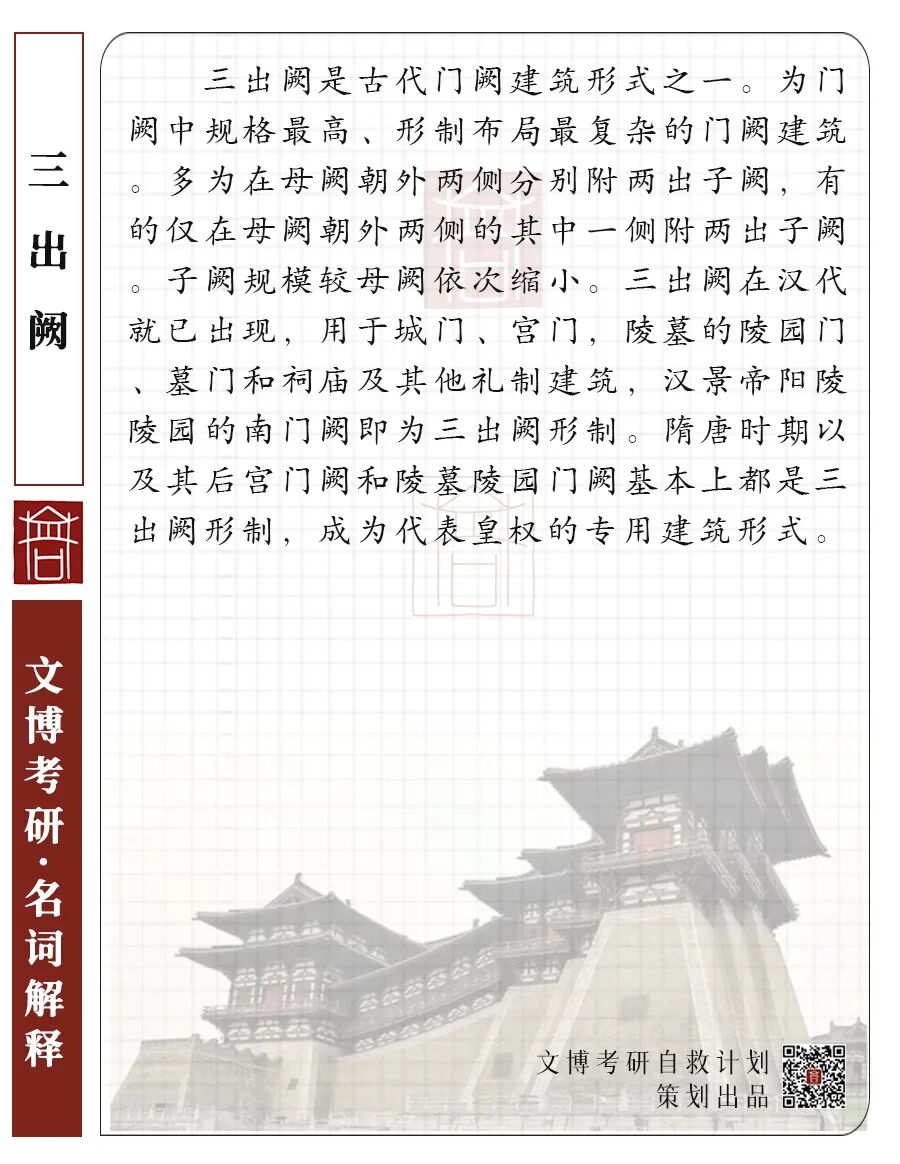 三出阙
文博考研·名词解释
三出阙是古代门阙建筑形式之一。为门
阙中规格最高、形制布局最复杂的门阙建筑
。多为在母阙朝外两侧分别附两出子阙，有
的仅在母阙朝外两侧的其中一侧附两出子阙
。子阙规模较母阙依次缩小。三出阙在汉代
就已出现，用于城门、宫门，陵墓的陵园门
、墓门和祠庙及其他礼制建筑，汉景帝阳陵
陵园的南门阙即为三出阙形制。隋唐时期以
及其后宫门阙和陵墓陵园门阙基本上都是三
出阙形制，成为代表皇权的专用建筑形式。
文博考研自救计划
策划出品